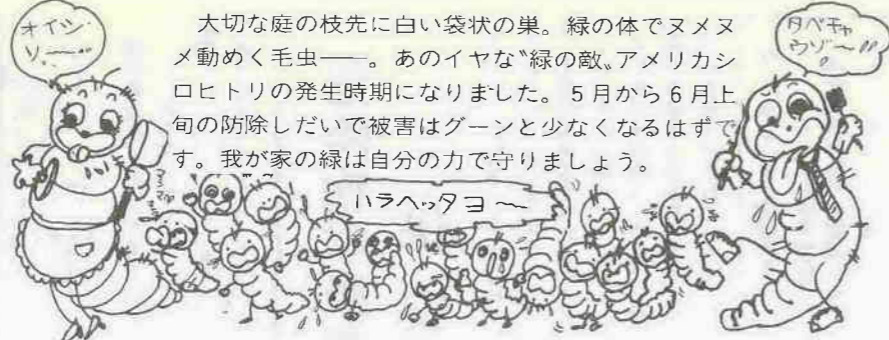 オイシ
ソ〜〜
大切な庭の枝先に白い袋状の巣。緑の体でヌメヌ
メ動めく毛虫――。あのイヤな〝緑の敵〟アメリカシ
ロヒトリの発生時期になりました。5月から6月上
旬の防除しだいで被害はグーンと少なくなるはずで
す。我が家の緑は自分の力で守りましょう。
タベチャ
ウゾ〜〃
ハラヘッタヨ〜